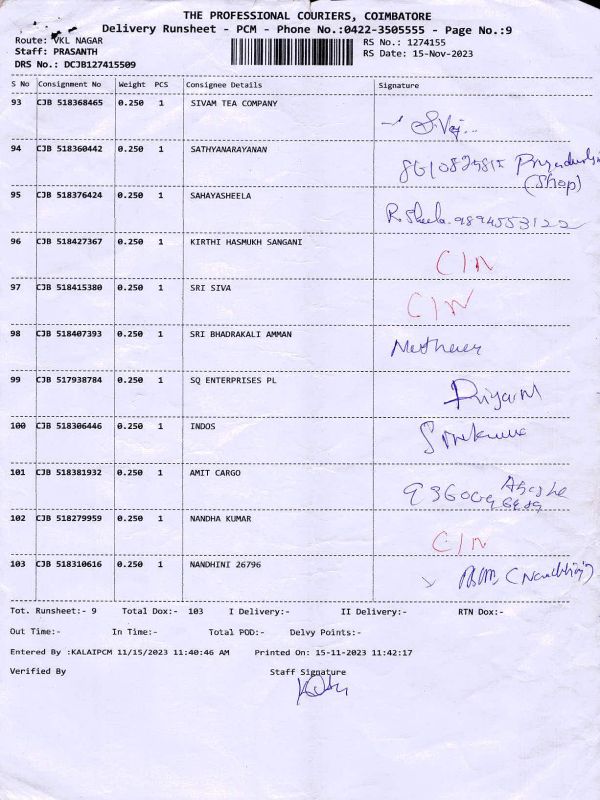 THE PROFESSIONAL COURIERS, COIMBATORE
Delivery Runsheet - PCM - Phone No.:0422-3505555 - Page No.:9
Route: VKL NAGAR
RS No.: 1274155
Staff: PRASANTH
RS Date: 15-Nov-2023
DRS No.: DCJB127415509
S No Consignment No Weight PCS Consignee Details Signature
93 CJB 518368465 0.250 1 SIVAM TEA COMPANY
94 CJB 518360442 0.250 1 SATHYANARAYANAN
(Shop)
95 CJB 518376424 0.250 1 SAHAYASHEELA
R. Sheela. 9894553122
96 CJB 518427367 0.250 1 KIRTHI HASMUKH SANGANI
C/N
97 CJB 518415380 0.250 1 SRI SIVA
C/N
98 CJB 518407393 0.250 1 SRI BHADRAKALI AMMAN
99 CJB 517938784 0.250 1 SQ ENTERPRISES PL
100 CJB 518306446 0.250 1 INDOS
101 CJB 518381932 0.250 1 AMIT CARGO
102 CJB 518279959 0.250 1 NANDHA KUMAR
C/N
103 CJB 518310616 0.250 1 NANDHINI 26796
Tot. Runsheet:- 9 Total Dox:- 103 I Delivery:- II Delivery:- RTN Dox:-
Out Time:- In Time:- Total POD:- Delvy Points:-
Entered By :KALAIPCM 11/15/2023 11:40:46 AM Printed On: 15-11-2023 11:42:17
Verified By Staff Signature